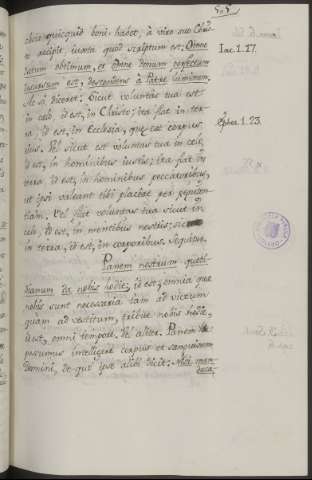 505
clesia quicquid boni habet, à vivo suo Capi
te accipit, iuxta quod scriptum est: Omne
datum obtimum, et Omne donum perfectum
Iac. 1. 17.
desursum est, descendens à Patre luminum,
Ac si diceret: Sicut voluntas tua est
in celo, id est, in Christo; ita fiat in ter
ra, id est, in Ecclesia, que est corpus
Ephes. 1. 23.
eius. Vel sicut est voluntas tua in celo,
id est, in hominibus iustis; ita fiat in
terra, id est, in hominibus peccatoribus,
ut ipsi valeant tibi placere per peniten
tiam. Vel fiat voluntas tua sicut in
celo, id est, in mentibus nostris;
in terra, id est, in corporibus. Sequitur.
Panem nostrum quoti
dianum da nobis hodie, id est, omnia que
nobis sunt necessaria tam ad victum
quam ad vestitum, tribue nobis hodie,
id est, omni tempore. Vel aliter. Panem
possumus intelligere corpus et sanguinem
Domini, de quo ipse alibi dicit: Nisi man
duca,